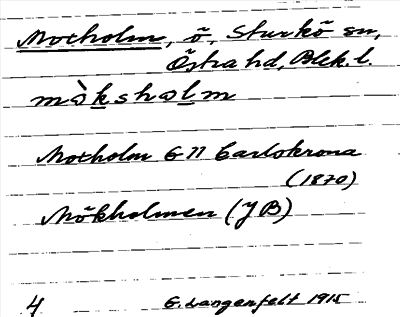 Mocholm, ö, Sturkö sn,
Östra hd, Blek. l.
mòksholm
Mocholm G Π Carlskrona
(1870)
Mökholmen (JB)
4 G. Langenfelt 1915